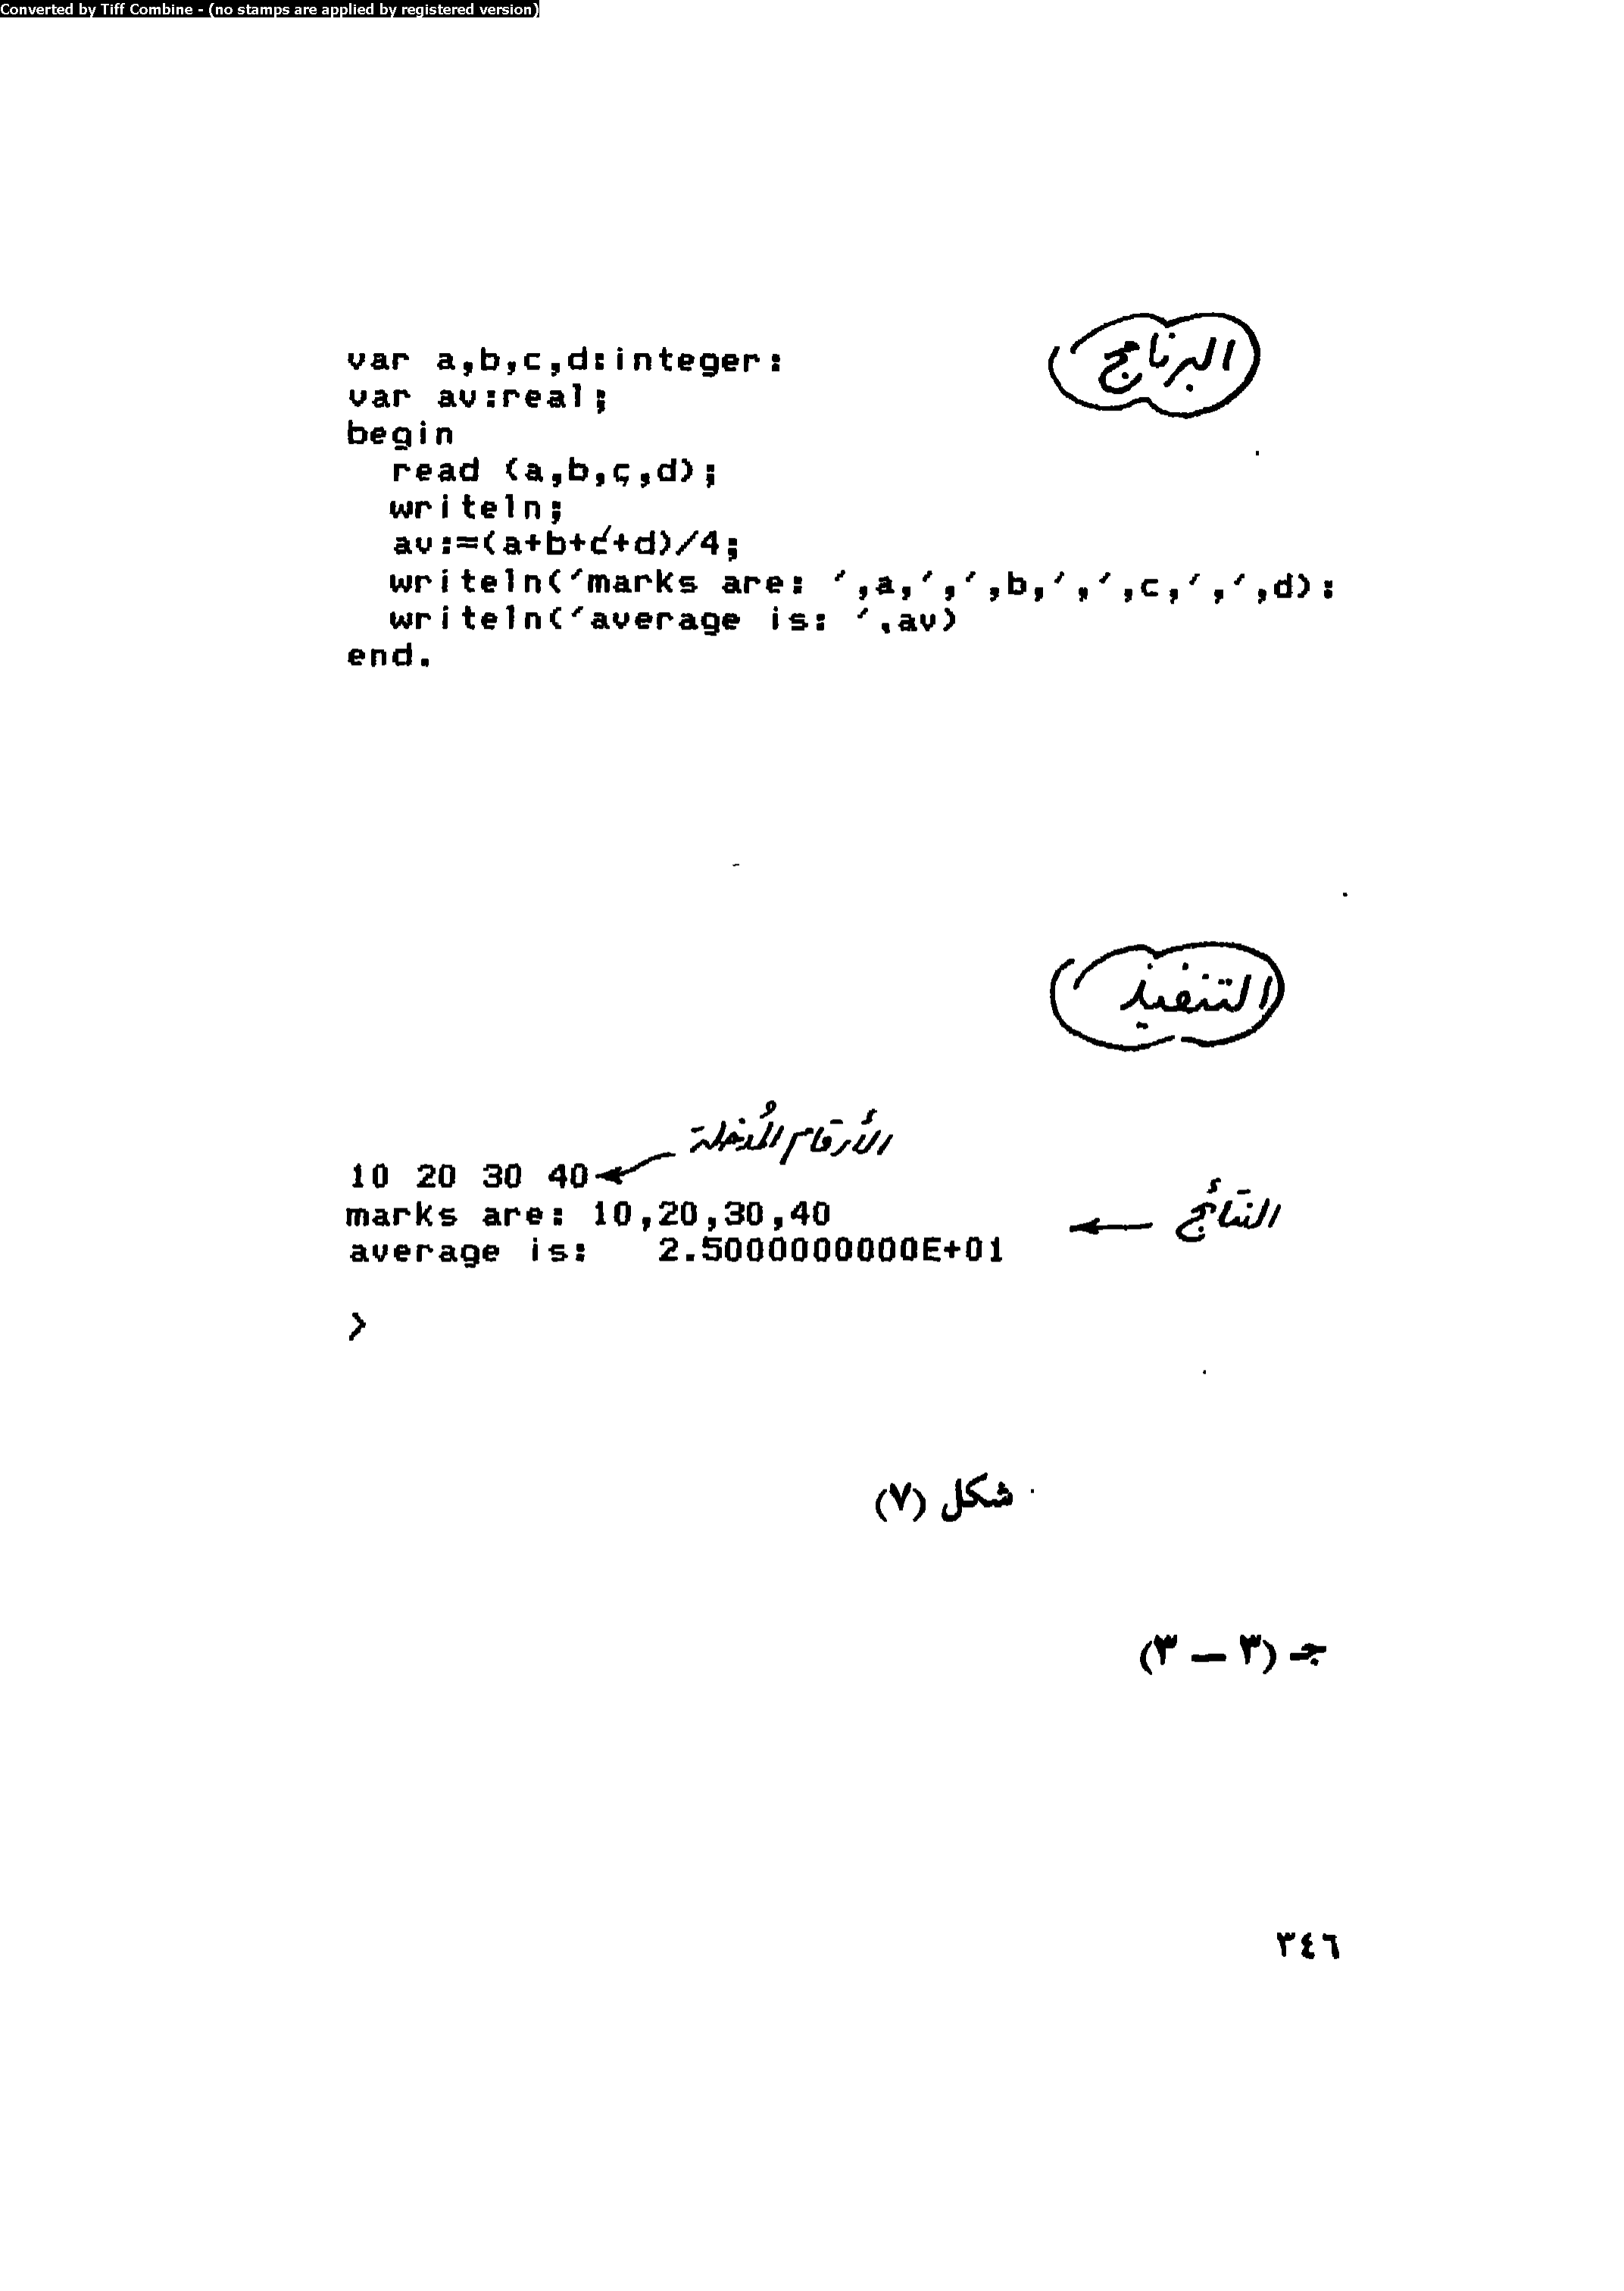 Converted by Tiff Combine - (no stamps are applied by registered version)
البرنامج
var a,b,c,d:integer:
var av:real;
begin
read (a,b,c,d);
writeln;
av:=(a+b+c+d)/4;
writeln('marks are: ',a,',',b,',',c,',',d):
writeln('average is: ',av)
end.
التنفيذ
الأرقام المُدخلة
10 20 30 40
marks are: 10,20,30,40
النتائج
average is: 2.5000000000E+01
>
شكل (٧)
جـ (٣ – ٣)
٣٤٦